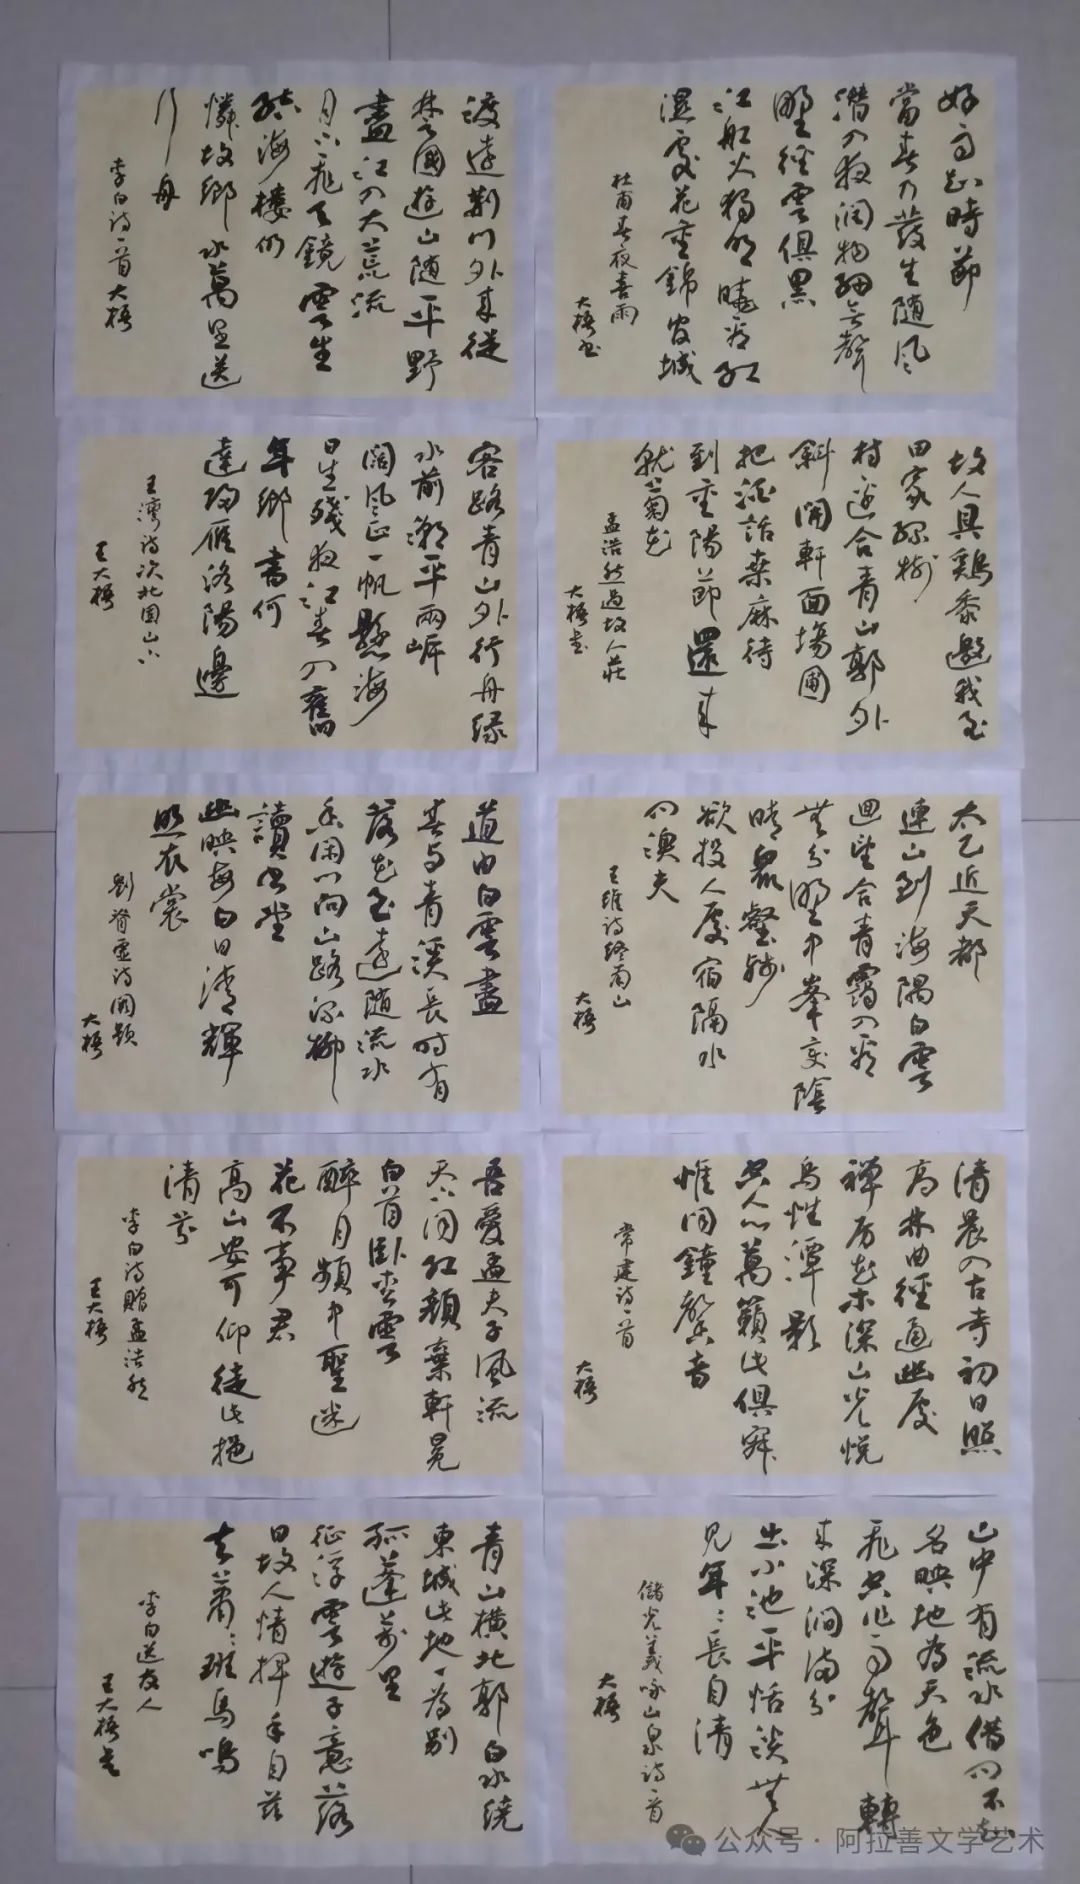 好雨知時節
當春乃發生随风
潛入夜润物細无聲
野徑雲俱黑
江船火獨明曉看红
濕處花重錦官城
杜甫春夜喜雨
大梧书
渡遠荆门外来從
楚國遊山随平野
盡江入大荒流
月下飛天鏡雲生
结海樓仍
憐故鄉水萬里送
行舟
李白诗一首大梧
故人具鷄黍邀我至
田家绿树
村邊合青山郭外
斜開軒面場圃
把酒話桑麻待
到重陽節還来
就菊花
孟浩然過故人莊
大梧书
客路青山外行舟绿
水前潮平兩岸
闊风正一帆懸海
日生殘夜江春入舊
年鄉書何
達归雁洛陽邊
王灣诗次北固山下
王大梧
太乙近天都
連山到海隅白雲
迴望合青靄入看
無分野中峯变陰
晴衆壑殊
欲投人處宿隔水
问漁夫
王維诗终南山
大梧
道由白雲盡
春与青溪長时有
落花至遠随流水
香闲门向山路深柳
讀书堂
幽映每白日清輝
照衣裳
劉脊虚诗阙题
大梧
清晨入古寺初日照
高林曲徑通幽處
禅房花木深山光悦
鸟性潭影
空人心萬籟此俱寂
惟闻鐘磬音
常建诗一首
大梧
吾愛孟夫子風流
天下闻红顏棄軒冕
白首卧松雲
醉月頻中聖迷
花不事君
高山安可仰徒此揖
清芬
李白诗赠孟浩然
王大梧
山中有流水借问不知
名映地为天色
飛空作雨聲轉
来深澗满分
出小池平恬淡無人
见年々長自清
儲光義咏山泉诗一首
大梧
青山横北郭白水绕
東城此地一为别
孤蓬万里
征浮雲遊子意落
日故人情揮手自兹
去萧々班馬鳴
李白送友人
王大梧书
公众号·阿拉善文学艺术